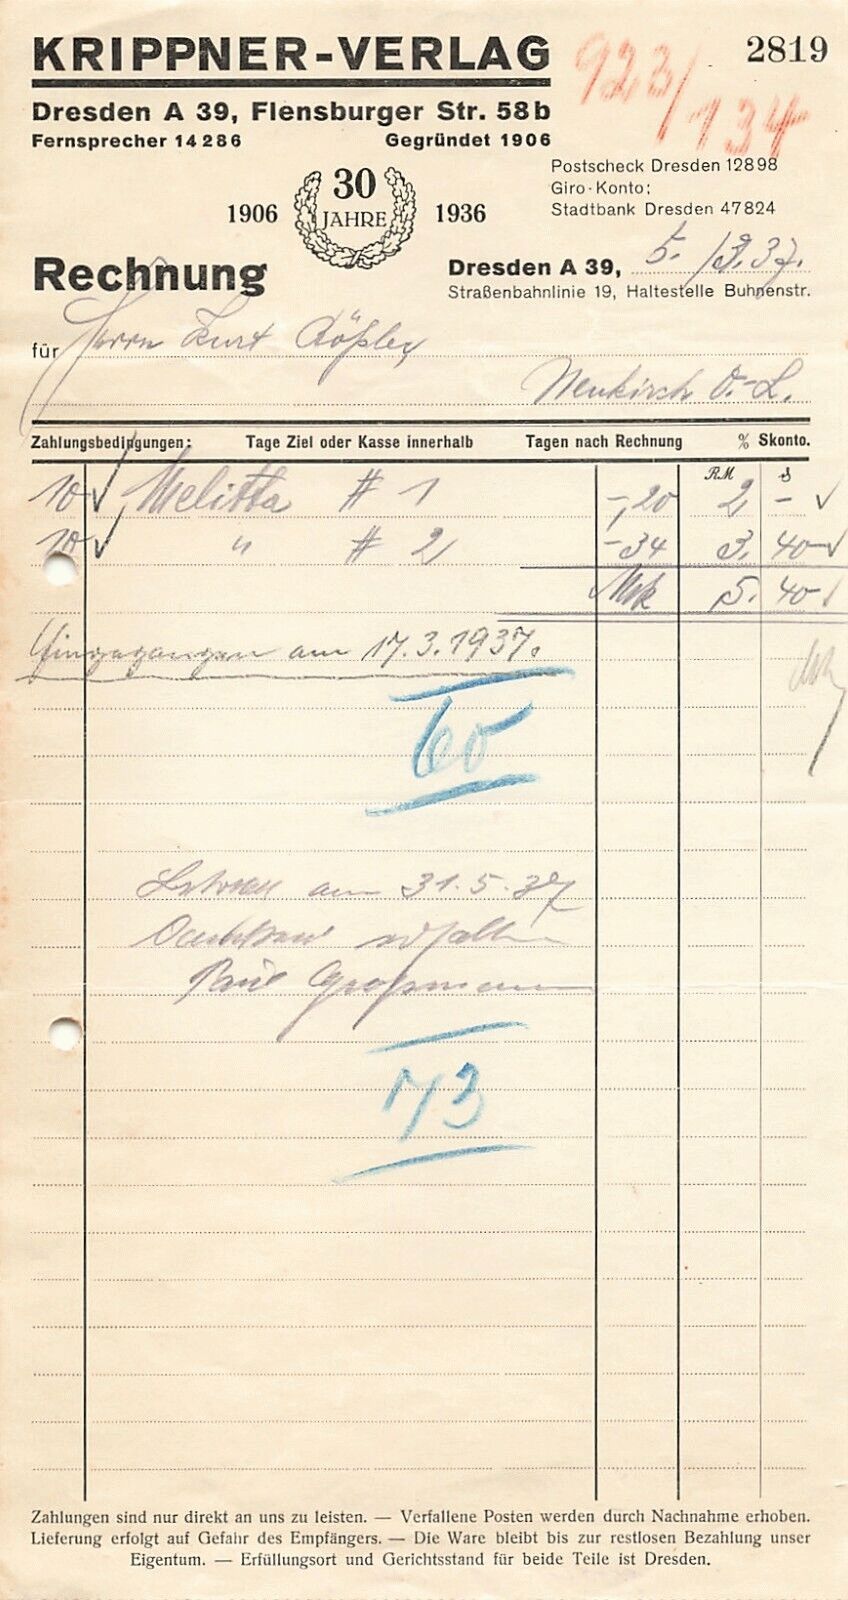 KRIPPNER-VERLAG
2819
923/134
Dresden A 39, Flensburger Str. 58b
Fernsprecher 14286 Gegründet 1906
Postscheck Dresden 12898
Giro-Konto:
Stadtbank Dresden 47824
1906 30 JAHRE 1936
Rechnung
Dresden A 39, 5./3.37.
Straßenbahnlinie 19, Haltestelle Buhnenstr.
für Herrn Kurt Rößler
Neukirch O.-L.
Zahlungsbedingungen: Tage Ziel oder Kasse innerhalb Tagen nach Rechnung % Skonto.
RM
10 Melitta # 1 -,20 2 -
10 " # 2 -34 3. 40
Mrk 5. 40
Eingegangen am 17.3.1937.
60
am 31.5.37
erhalten
Paul Großmann
73
Zahlungen sind nur direkt an uns zu leisten. — Verfallene Posten werden durch Nachnahme erhoben.
Lieferung erfolgt auf Gefahr des Empfängers. — Die Ware bleibt bis zur restlosen Bezahlung unser
Eigentum. — Erfüllungsort und Gerichtsstand für beide Teile ist Dresden.